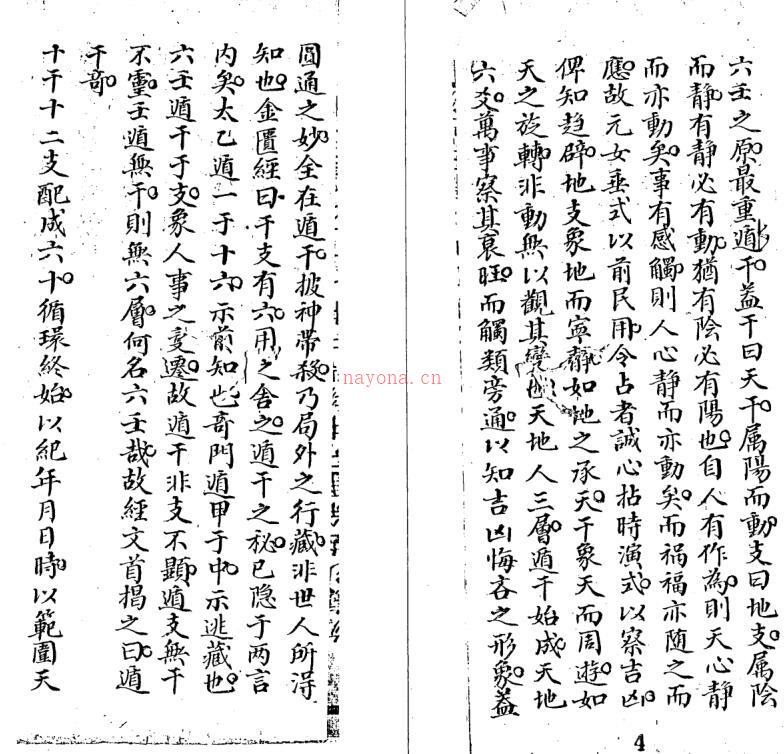 六壬之原最重遁干蓋干曰天干属陽而動支曰地支属陰
而静有静必有動猶有陰必有陽也自人有作為則天心静
而亦動矣事有感觸則人心静而亦動矣而禍福亦随之而
應故元女垂式以前民用令占者誠心拈時演式以察吉凶
俾知趋辟地支象地而寧静如地之承天天干象天而周遊如
天之旋轉非動無以觀其變也天地人三層遁干始成天地
六爻萬事察其衰旺而觸類旁通以知吉凶悔吝之形象蓋
圓通之妙全在遁干披神帶殺乃局外之行藏非世人所得
知也金匱經曰干支有六用之舍之遁干之秘已隐于两言
内矣太乙遁一于十六示前知也奇門遁甲于中示逃藏也
六壬遁干于支象人事之变遷故遁干非支不顯遁支無干
不靈壬遁無干則無六層何名六壬哉故經文首揭之曰遁
干奇
十干十二支配成六十循環終始以紀年月日時以範圍天
nayona.cn
4